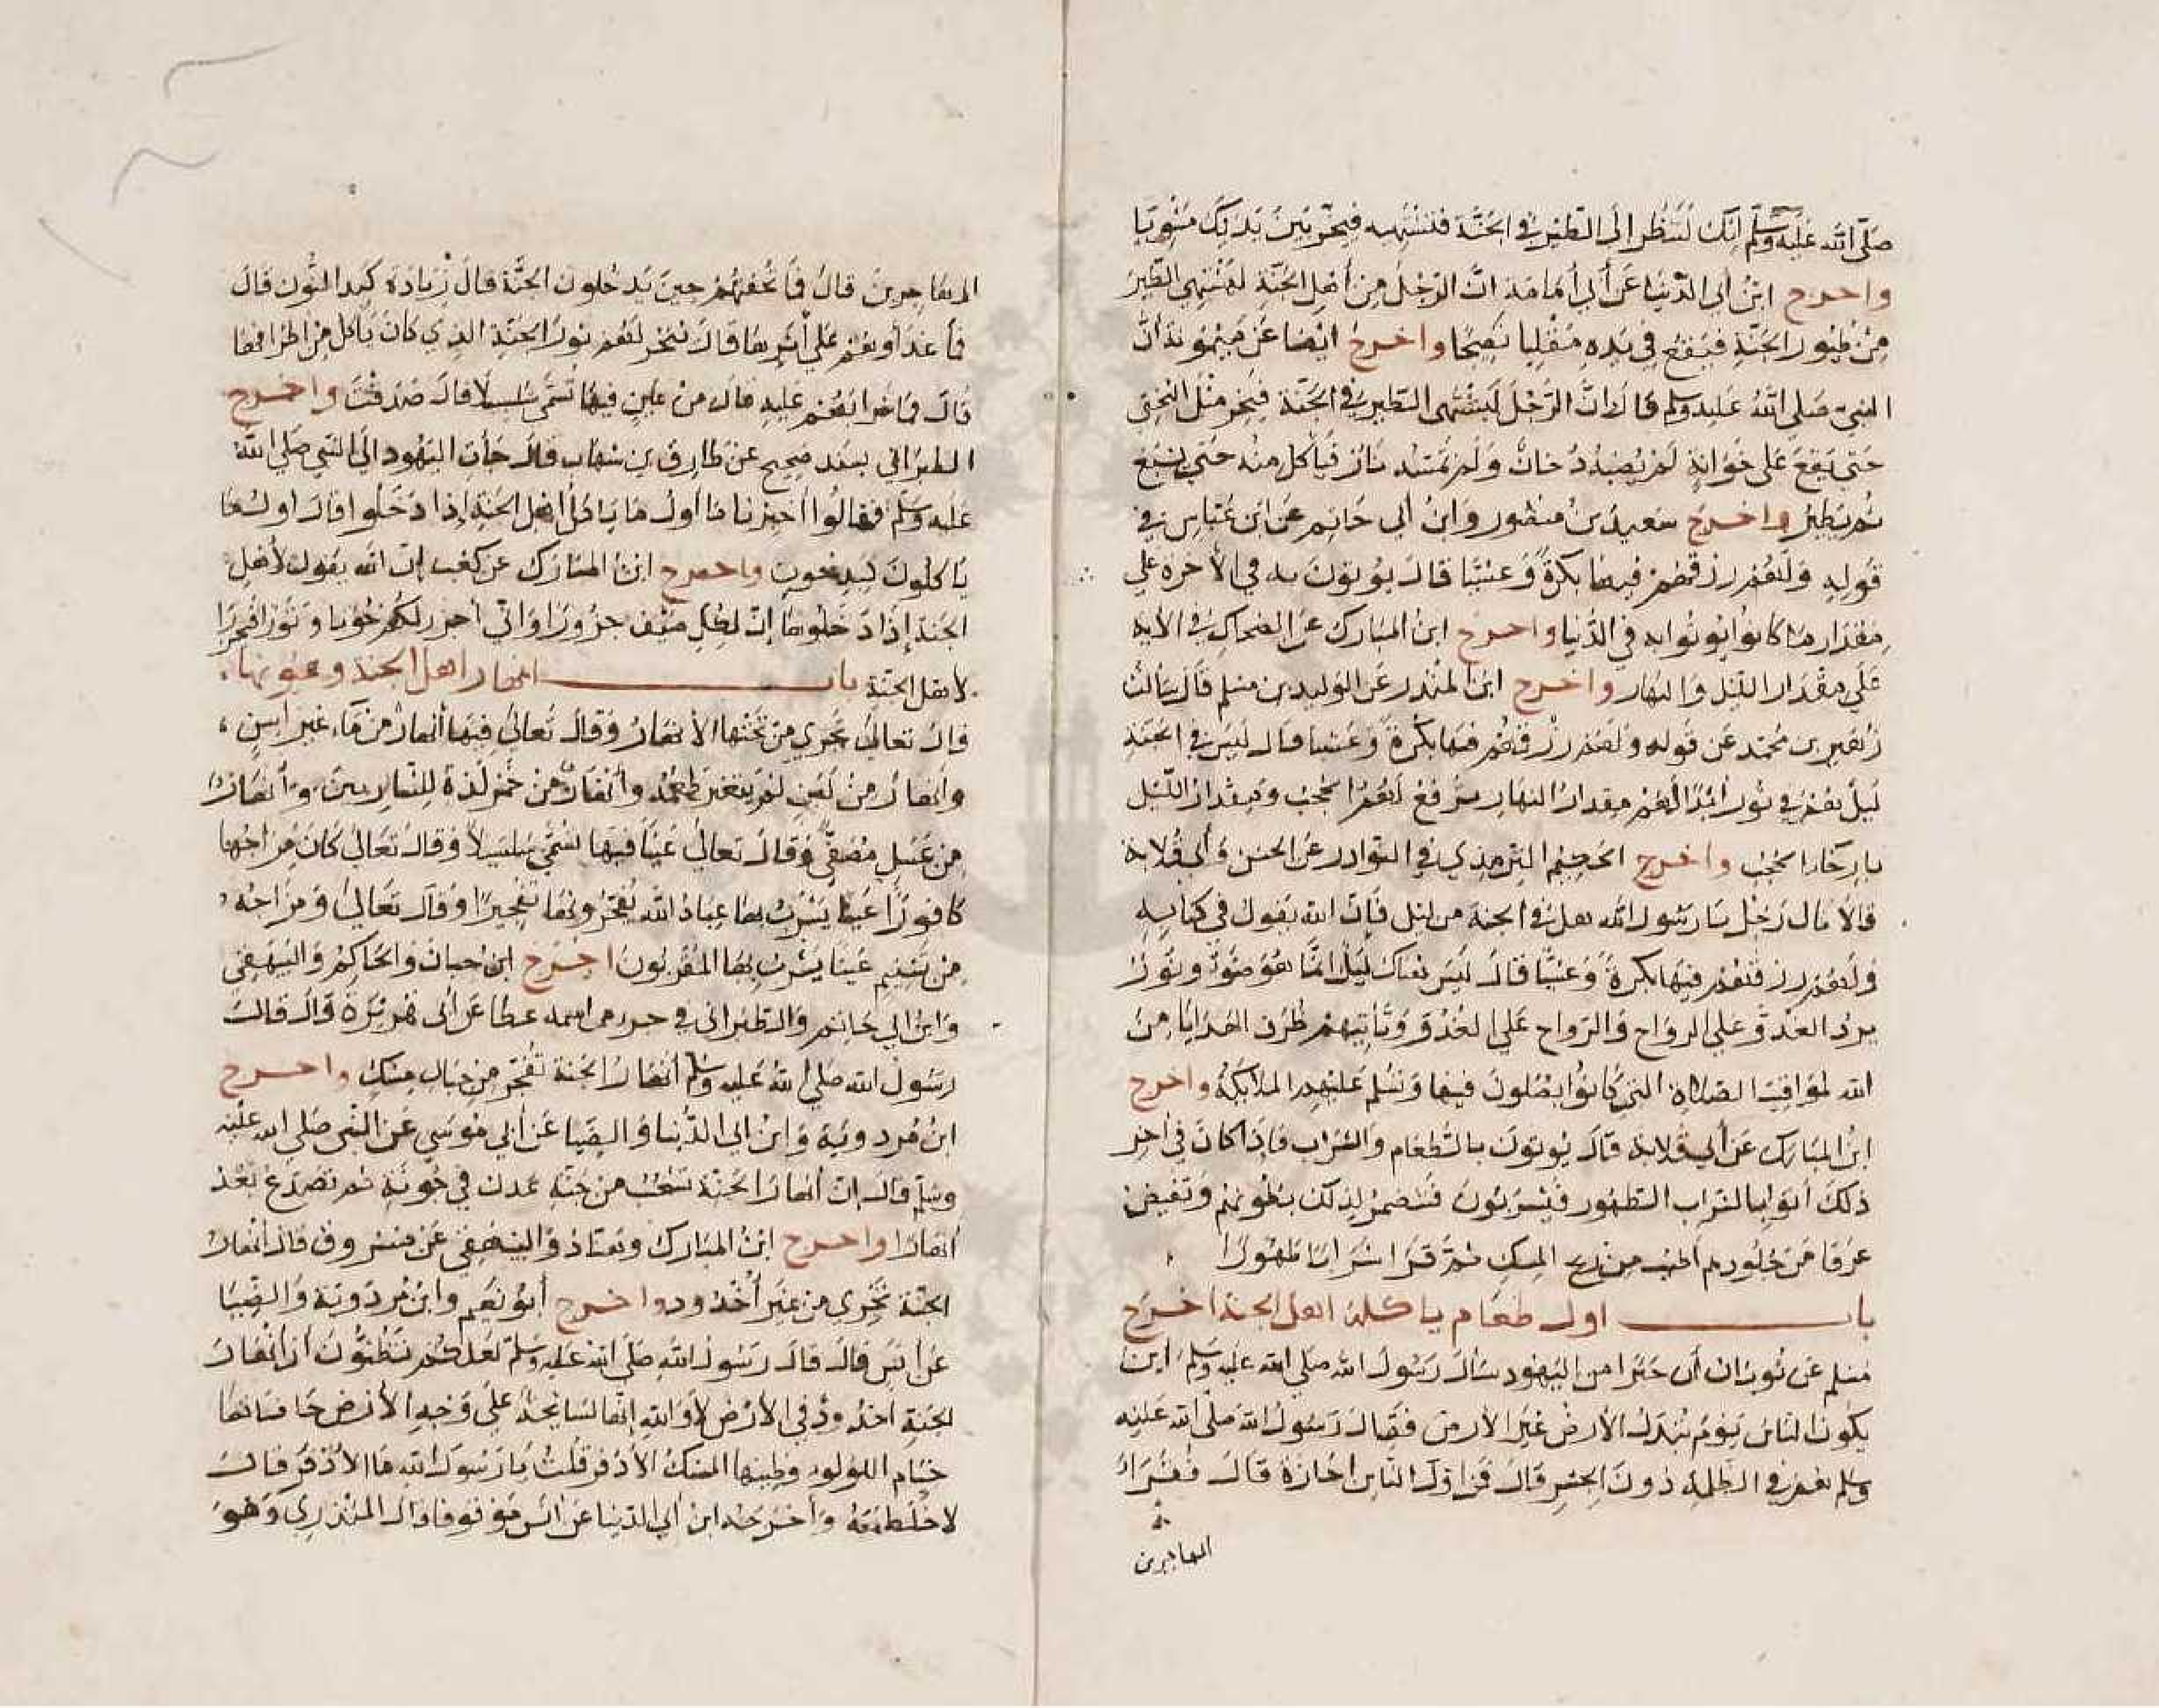 صلى الله عليه وسلم إنك لتنظر إلى الطير في الجنة فتشتهيه فيخر بين يديك مشويا
واخرج ابن أبي الدنيا عن أبي أمامة ان الرجل من أهل الجنة ليشتهي الطير
من طيور الجنة فيقع في يده مقليا نضيجا واخرج ايضا عن ميمونة أن
النبي صلى الله عليه وسلم قال ان الرجل ليشتهي الطير في الجنة فيخر مثل البختي
حتى يقع على خوانه لم يصبه دخان ولم تمسه نار فيأكل منه حتى يشبع
ثم يطير واخرج سعيد بن منصور وابن أبي حاتم عن ابن عباس في
قوله ولهم رزقهم فيها بكرة وعشيا قال يوتون به في الآخرة على
مقدار ما كانوا يوتوا به في الدنيا واخرج ابن المبارك عن الضحاك في الآية
على مقدار الليل والنهار واخرج ابن المنذر عن الوليد بن مسلم قال سالت
زهير بن محمد عن قوله ولهم رزقهم فيها بكرة وعشيا قال ليس في الجنة
ليل هم في نور ابدا لهم مقدار النهار برفع لهم الحجب ومقدار الليل
بارخاء الحجب واخرج الحكيم الترمذي في النوادر عن الحسن وأبي قلابة
قالا قال رجل يا رسول الله هل في الجنة من ليل فإن الله يقول في كتابه
ولهم رزقهم فيها بكرة وعشيا قال ليس هناك ليل انما هو ضوء ونور
يرد الغدو على الرواح والرواح على الغدو وتأتيهم طرف الهدايا من
الله لمواقيت الصلاة التي كانوا يصلون فيها وتسلم عليهم الملائكة واخرج
ابن المبارك عن أبي قلابة قال يوتون بالطعام والشراب فاذا كان في آخر
ذلك اتوا بالشراب الطهور فيشربون فتضمر لذلك بطونهم وتفيض
عرقا من جلودهم اطيب من ريح المسك ثم قرا شرابا طهورا
باب اول طعام ياكله اهل الجنة اخرج
مسلم عن ثوبان أن حبرا من اليهود سال رسول الله صلى الله عليه وسلم اين
يكون الناس يوم تبدل الأرض غير الأرض فقال رسول الله صلى الله عليه
وسلم هم في الظلمة دون الجسر قال فمن اول الناس اجازة قال فقراء
المهاجرين
المهاجرين قال فما تحفتهم حين يدخلون الجنة قال زيادة كبد النون قال
فما غداوهم على أثرها قال ينحر لهم ثور الجنة الذي كان يأكل من اطرافها
قال فما شرابهم عليه قال من عين فيها تسمى سلسبيلا قال صدقت واخرج
الطبراني بسند صحيح عن طارق بن شهاب قال جات اليهود الى النبي صلى الله
عليه وسلم فقالوا أخبرنا ما أول ما ياكل أهل الجنة إذا دخلوا قال اول ما
ياكلون كبد حوت واخرج ابن المبارك عن كعب إن الله يقول لأهل
الجنة إذا دخلوها إن لكل ضيف جزورا واني أجزركم حوتا وثورا فيجزر
لاهل الجنة باب انهار اهل الجنة وعيونها
قال تعالى تجري من تحتها الأنهار وقال تعالى فيها أنهار من ماء غير اسن
وانهار من لبن لم يتغير طعمه وأنهار من خمر لذة للشاربين وأنهار
من عسل مصفى وقال تعالى عينا فيها تسمى سلسبيلا وقال تعالى كان مزاجها
كافورا عينا يشرب بها عباد الله يفجرونها تفجيرا وقال تعالى ومزاجه
من تسنيم عينا يشرب بها المقربون اخرج ابن حبان والحاكم والبيهقي
وابن ابي حاتم والطبراني في عن أبي هريرة قال قال
رسول الله صلى الله عليه وسلم أنهار الجنة تفجر من جبال مسك واخرج
ابن مردوية وابن ابي الدنيا والضيا عن أبي موسى عن النبي صلى الله عليه
وسلم قال ان أنهار الجنة تشخب من جنة عدن في جوبة ثم تصدع بعد
أنهارا واخرج ابن المبارك وهناد والبيهقي عن مسروق قال أنهار
الجنة تجري من غير أخدود واخرج أبو نعيم وابن مردوية والضيا
عن أنس قال قال رسول الله صلى الله عليه وسلم لعلكم تظنون أن أنهار
الجنة اخدود في الأرض لا والله إنها لسايحة على وجه الأرض حافتاها
خيام اللولو وطينها المسك الأذفر قلت يا رسول الله ما الأذفر قال
لا خلط معه وأخرجه ابن أبي الدنيا عن أنس موقوفا قال المنذري وهو